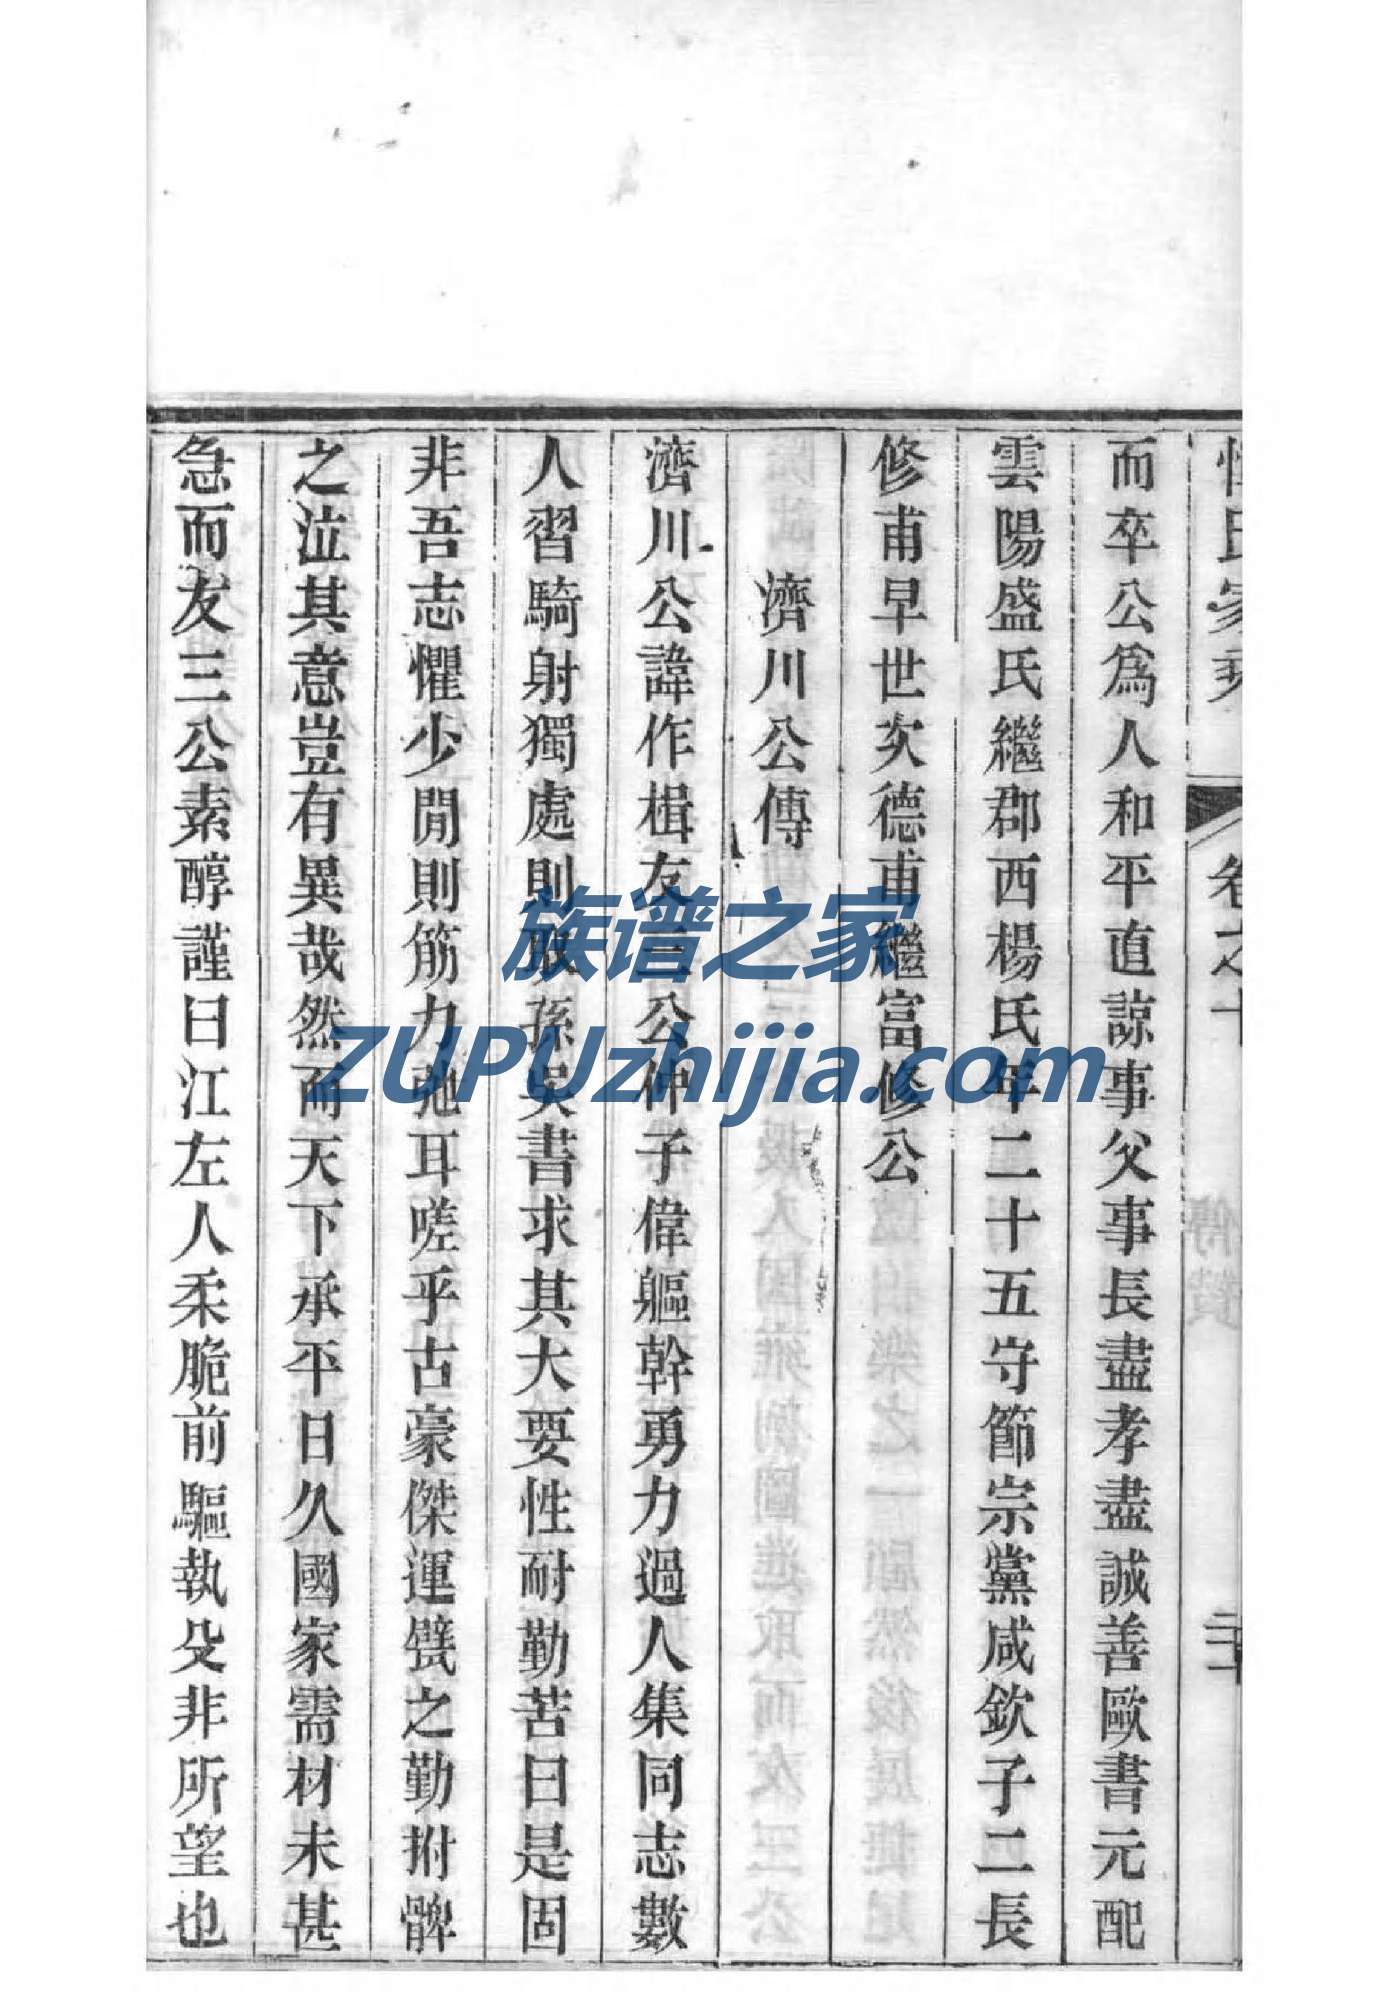 惲氏家乘 卷之十 二十
而卒公爲人和平直諒事父事長盡孝盡誠善歐書元配
雲陽盛氏繼郡西楊氏年二十五守節宗黨咸欽子二長
修甫早世次德甫繼富修公
濟川公傳
濟川公諱作楫友三公仲子偉軀幹勇力過人集同志數
人習騎射獨處則取孫吳書求其大要性耐勤苦曰是固
非吾志懼少閒則筋力弛耳嗟乎古豪傑運甓之勤拊髀
之泣其意豈有異哉然而天下承平日久國家需材未甚
急而友三公素醇謹曰江左人柔脆前驅執殳非所望也
族谱之家
ZUPUzhijia.com